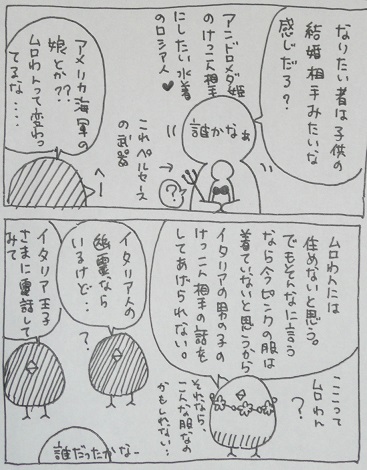 なりたい者は子供の
結婚相手みたいな
感じだろ?
アンドロメダ姫
のけっこん相手
にしたい水着
のロシア人♥
誰かなぁ
これペルセース
の武器
→
?
アメリカ海軍の
娘とか??
ムロわんって変わっ
てるな....
へー
ムロわんには
住めないと思う。
でもそんなに言う
なら今ピンクの服は
着ていないと思うから
イタリアの男の子の
けっこん相手の話を
してあげられない。
ここって
ムロわん
?
それなら、
こんな服なの
かもしれない...
イタリア人の
幽霊なら
いるけど...
?
イタリア王子
さまに電話して
みて
誰だったかなー